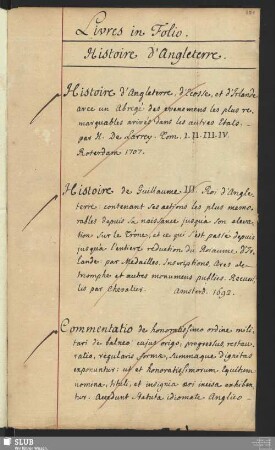 Livres in Folio.
Histoire d'Angleterre.
Histoire d'Angleterre, d'Ecosse, et d'Irlande
avec un Abregé des evenemens les plus re,
marquables arrivés dans les autres Etats.
par M. De Larrey. Tom. I. II. III. IV.
Roterdam 1707.
Histoire de Guillaume III. Roi d'Angle,
terre contenant ses actions les plus memo,
rables depuis sa naissance jusqu'a son eleva,
tion sur le Trône, et ce qui s'est passé depuis
jusqu'a l'entiere reduction du Royaume d'Ir,
lande: par Medailles, Inscriptions, Arcs de
triomphe et autres monumens publics. Recueil,
lis par Chevalier. Amsterd. 1692.
Commentatio de honoratissimo ordine mili,
tari de balneo cujus origo, progressus, restau,
ratio, regularis forma, summaque dignitas
exponuntur: uti et honoratissimorum Equitum
nomina, tituli, et insignia pri incisa exhiben,
tur. Accedunt Statuta idiomate Anglico.
SLUB